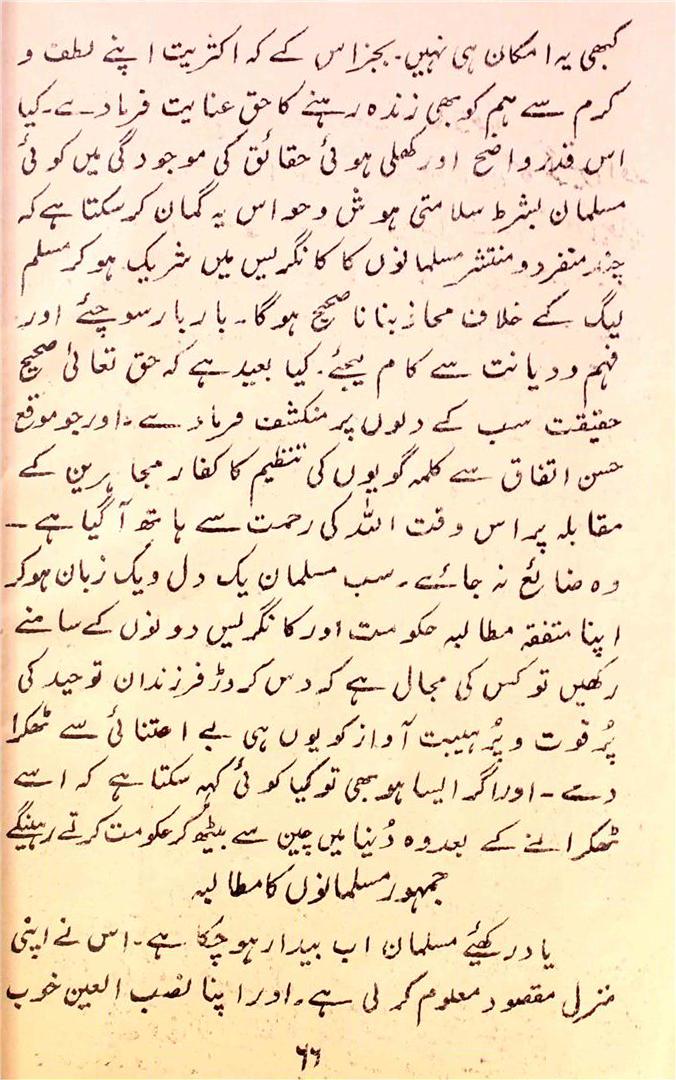 کبھی یہ امکان ہی نہیں۔ بجز اس کے کہ اکثریت اپنے لطف و
کرم سے ہم کو بھی زندہ رہنے کا حق عنایت فرما دے۔ کیا
اس قدر واضح اور کھلی ہوئی حقائق کی موجودگی میں کوئی
مسلمان بشرط سلامتی ہوش و حواس یہ گمان کر سکتا ہے کہ
چند منفرد و منتشر مسلمانوں کا کانگریس میں شریک ہو کر مسلم
لیگ کے خلاف محاذ بنانا صحیح ہوگا۔ بار بار سوچئے اور
فہم و دیانت سے کام لیجئے۔ کیا بعید ہے کہ حق تعالیٰ صحیح
حقیقت سب کے دلوں پر منکشف فرما دے۔ اور جو موقع
حسن اتفاق سے کلمہ گویوں کی تنظیم کا کفار مجاہرین کے
مقابلہ پر اس وقت اللہ کی رحمت سے ہاتھ آ گیا ہے۔
وہ ضائع نہ جائے۔ سب مسلمان یک دل و یک زبان ہو کر
اپنا متفقہ مطالبہ حکومت اور کانگریس دونوں کے سامنے
رکھیں تو کس کی مجال ہے کہ دس کروڑ فرزندان توحید کی
پُر قوت و پُر ہیبت آواز کو یوں ہی بے اعتنائی سے ٹھکرا
دے۔ اور اگر ایسا ہو بھی تو کیا کوئی کہہ سکتا ہے کہ اسے
ٹھکرانے کے بعد وہ دُنیا میں چین سے بیٹھ کر حکومت کرتے رہینگے
جمہور مسلمانوں کا مطالبہ
یاد رکھئے مسلمان اب بیدار ہو چکا ہے۔ اس نے اپنی
منزل مقصود معلوم کر لی ہے۔ اور اپنا نصب العین خوب
۶۶